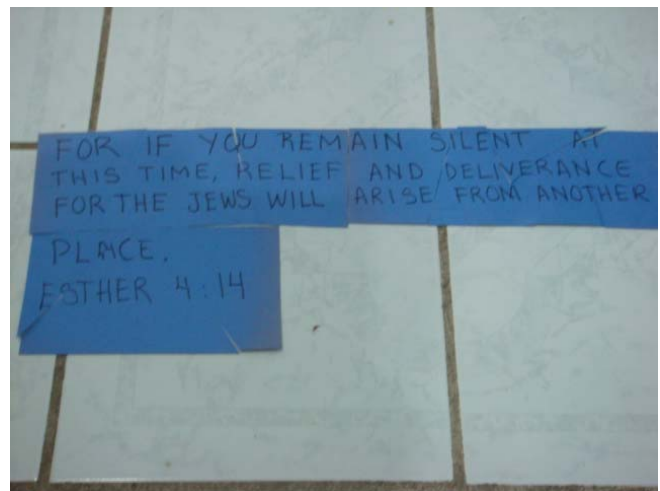 FOR IF YOU REMAIN SILENT AT
THIS TIME, RELIEF AND DELIVERANCE
FOR THE JEWS WILL ARISE FROM ANOTHER
PLACE.
ESTHER 4:14